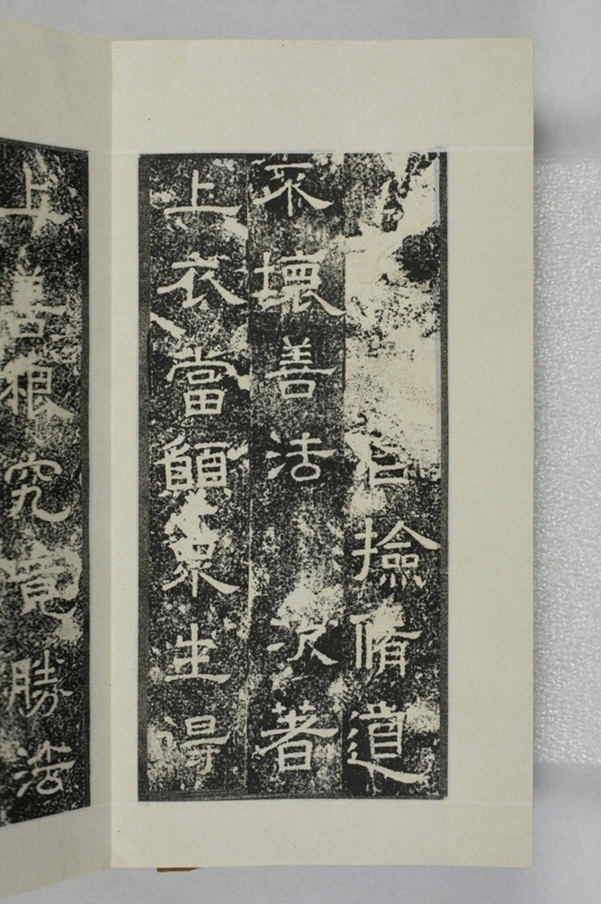 自撿脩道
不壞善法 次著
上衣當願衆生得
上善根究竟勝法